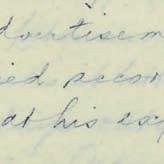 dvertisem
ied accor
at his exp